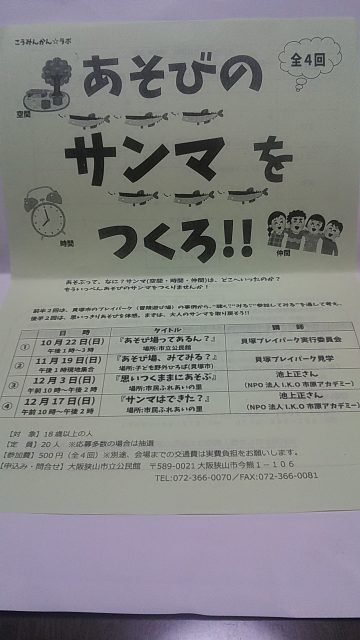 こうみんかん☆ラボ
あそびの
全4回
空間
サンマを
時間
つくろ!!
仲間
あそぶって、なに?サンマ(空間・時間・仲間)は、どこへいったのか?
もういっぺんあそびのサンマをつくりませんか!
前半2回は、貝塚市のプレイパーク(冒険遊び場)の事例から、“聴く”“みる”“参加してみる”を通して考え、
後半2回は、思いっきりあそびを体感。まずは、大人のサンマを取り戻そう!!
日 時 タイトル 講 師
① 10月22日(日) 午後1時~3時 『あそび場ってあるん?』 場所:市立公民館 貝塚プレイパーク実行委員会
② 11月19日(日) 午後1時現地集合 『あそび場、みてみる?』 場所:子ども野外ひろば(貝塚市) 貝塚プレイパーク見学
③ 12月3日(日) 午前10時~午後2時 『思いつくままにあそぶ』 場所:市民ふれあいの里 池上正さん (NPO 法人 I.K.O 市原アカデミー)
④ 12月17日(日) 午前10時~午後2時 『サンマはできた?』 場所:市民ふれあいの里 池上正さん (NPO 法人 I.K.O 市原アカデミー)
【対 象】18歳以上の人
【定 員】20人 ※応募多数の場合は抽選
【参加費】500円(全4回)※別途、会場までの交通費は実費負担をお願いします。
【申込み・問合せ】大阪狭山市立公民館 〒589-0021大阪狭山市今熊1-106
TEL:072-366-0070/FAX:072-366-0081